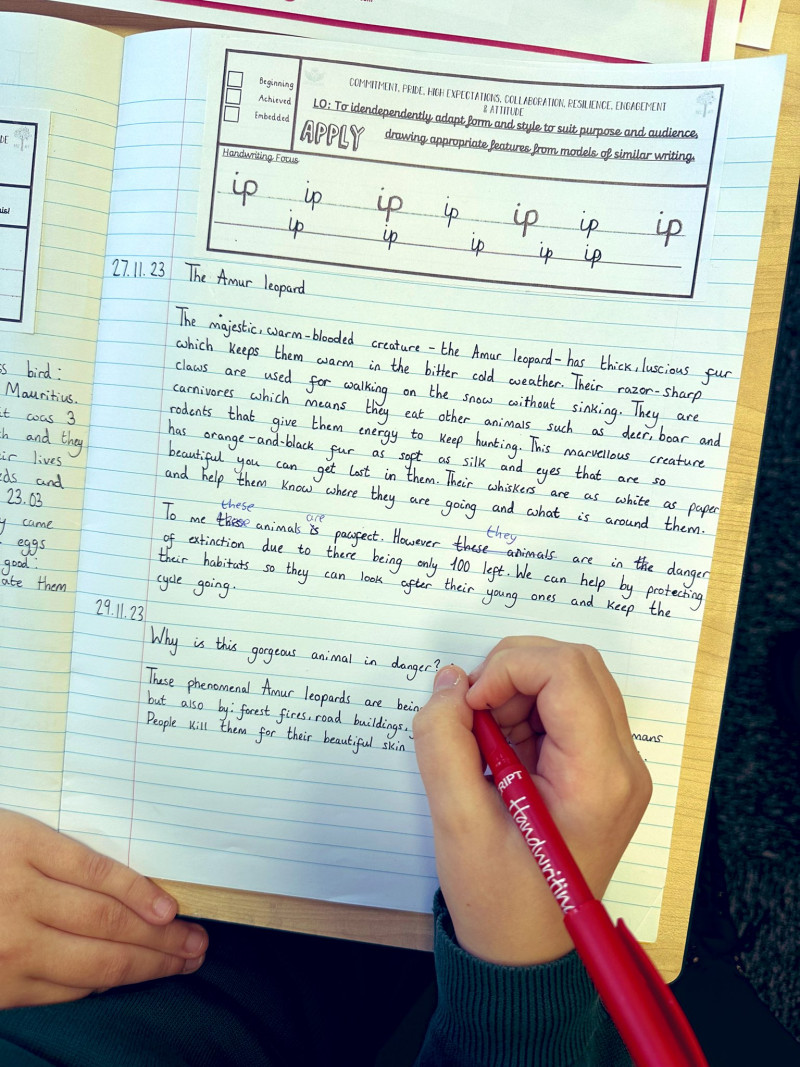 Beginning
Achieved
Embedded
COMMITMENT, PRIDE, HIGH EXPECTATIONS, COLLABORATION, RESILIENCE, ENGAGEMENT
& ATTITUDE
LO: To idendependently adapt form and style to suit purpose and audience,
APPLY drawing appropriate features from models of similar writing.
Handwriting Focus
ip ip ip ip ip ip ip
ip ip ip ip ip
27.11.23 The Amur leopard
The majestic, warm-blooded creature - the Amur leopard - has thick, luscious fur
which keeps them warm in the bitter cold weather. Their razor-sharp
claws are used for walking on the snow without sinking. They are
carnivores which means they eat other animals such as deer, boar and
rodents that give them energy to keep hunting. This marvellous creature
has orange-and-black fur as soft as silk and eyes that are so
beautiful you can get lost in them. Their whiskers are as white as paper
and help them know where they are going and what is around them.
these are they
To me these animals is pawfect. However these animals are in the danger
of extinction due to there being only 100 left. We can help by protecting
their habitats so they can look after their young ones and keep the
cycle going.
29.11.23
Why is this gorgeous animal in danger?
These phenomenal Amur leopards are
but also by: forest fires, road buildings,
mans
People kill them for their beautiful skin
DE
bird:
Mauritius.
it was 3
and they
lives
and
23.03
came
eggs
good:
ate them
Handwritin